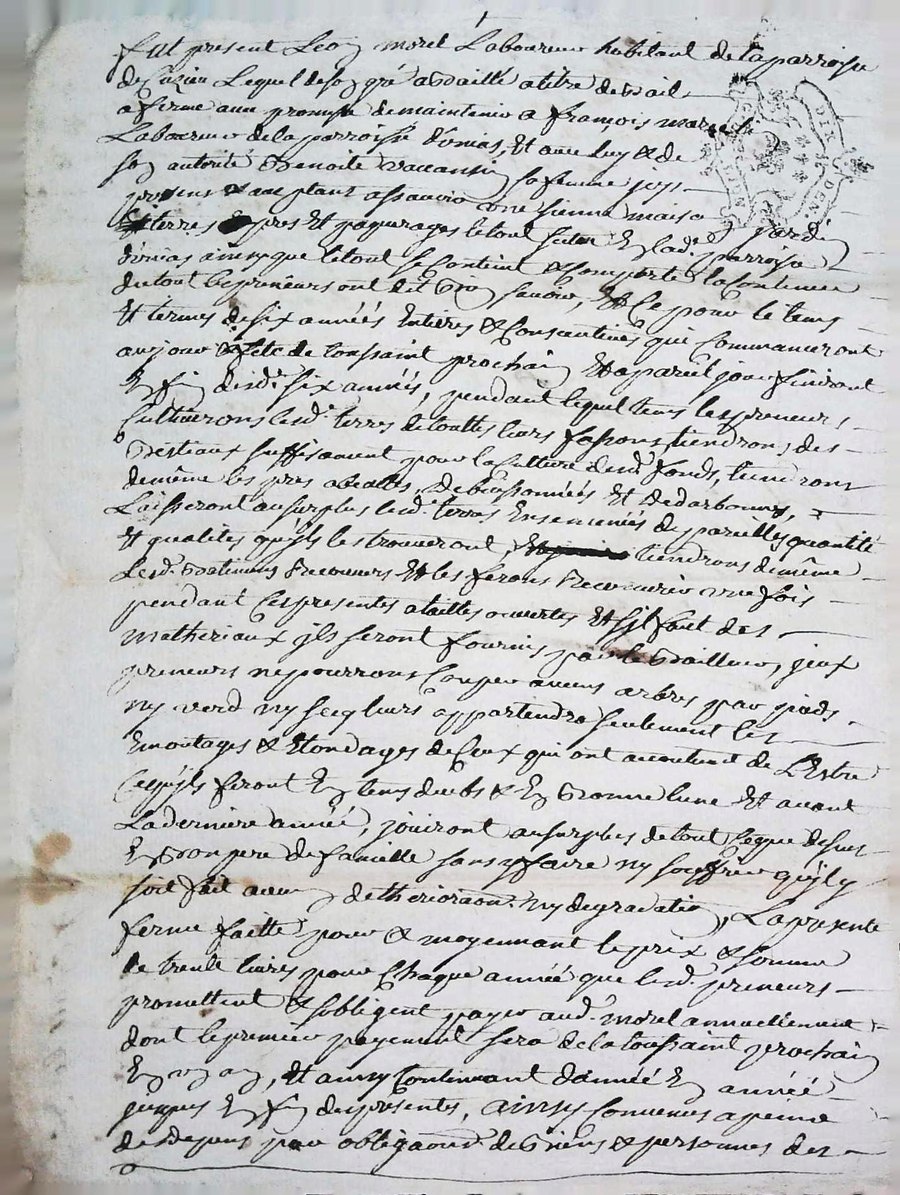 Fut present Leon morel Laboureur habitant de la parroisse
de Cuzieu Lequel de son gré a baillé a titre de bail
a ferme avec promesse de maintenir a françois
Laboureur de la parroisse d'unias, Et avec luy & de
son autorité Benoite sa femme jcy
presens & acceptant assavoir une sienne maison jardin
Et terres prés Et paquerages le tout scitué En lad. parroisse
d'unias ainsy que le tout se Contient & Comporte la Contenue
du tout les preneurs ont dit bien savoir, Et Ce pour le tems
Et termes de six années Entieres & Consecutives qui Commanceront
au jour & fete de toussaint prochain Et a pareil jour finiront
En fin desd. six années, pendant lequel tems les preneurs
Cultiverons lesd. terres de touttes leurs fassons, tiendrons des
bestiaux suffisament pour la Culture desd. fonds, tiendront
de même les prés debuissonnées Et
Laisseront au surplus lesd. terres Ensemencés de pareilles quantité
Et qualités qu'jls les trouveront tiendrons de même
Lesd. batimens Recouvers Et les ferons Recouvrir une fois
pendant Ces presentes a tailles ouvertes Et s'jl faut des
matheriaux jls seront fournis par le bailleur, jceux
preneurs ne pourrons Couper aucuns arbres par pieds
ny verd ny secq leurs appartendra seulement les
Emontages & Etondages de Ceux qui ont accoutumé de L'Estre
Ce qu'jls feront En tems dub & En bonne lune Et avant
La derniere année, jouiront au surplus de tout Ce que dessus
En bon pere de famille sans y faire ny souffrir qu'jl y
soit fait aucun detherioraon. ny degradation, La presente
ferme faitte pour & moyennant le prix & somme
de trente livres pour Chaque année que lesd. preneurs
promettent & s'obligent payer aud. morel annuellement
dont le premier payement sera de la toussaint prochain
En un an, Et ainsy Continuant d'année En année
jusques En fin des presentes, ainsy Convenus a peine
de depens par obligaon. de biens & personnes des